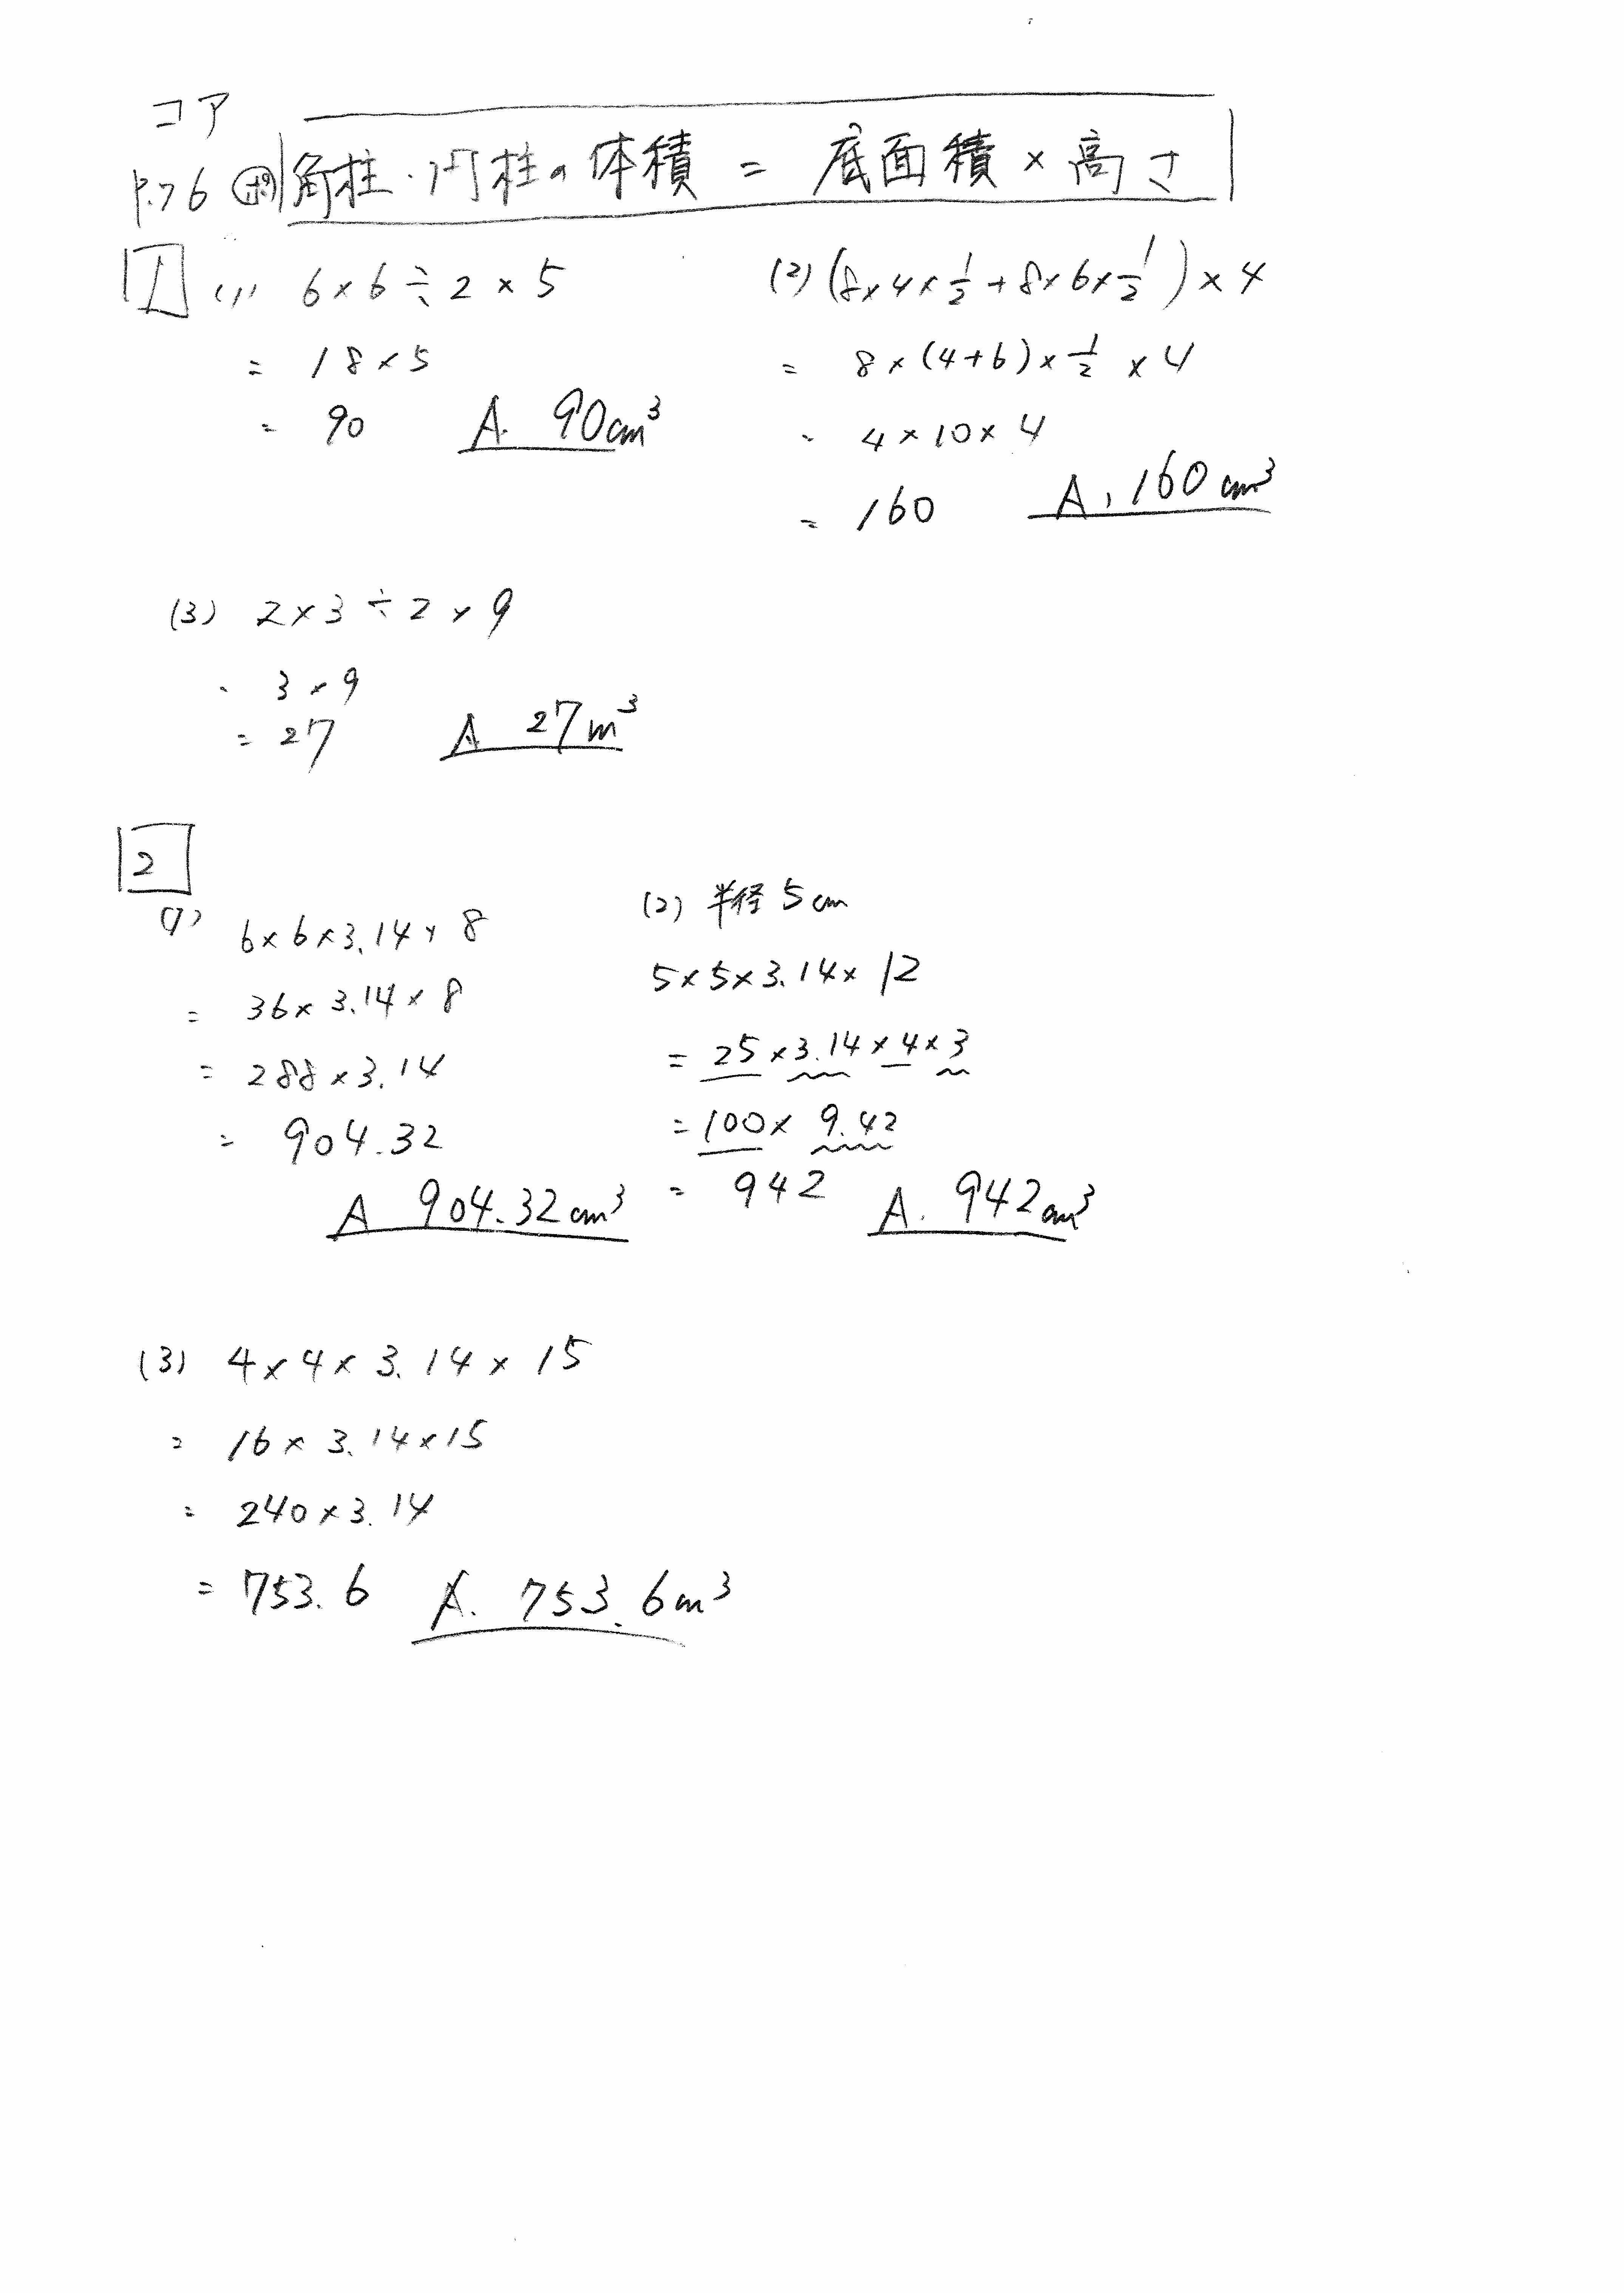 コア
P.76 ㋭ 角柱・円柱の体積 = 底面積 × 高さ
1 (1) 6×6÷2×5
= 18×5
= 90 A. 90cm³
(2) (8×4×1/2+8×6×1/2)×4
= 8×(4+6)×1/2×4
= 4×10×4
= 160 A. 160cm³
(3) 2×3÷2×9
= 3×9
= 27 A 27m³
2
(1) 6×6×3.14×8
= 36×3.14×8
= 288×3.14
= 904.32
A 904.32cm³
(2) 半径5cm
5×5×3.14×12
= 25×3.14×4×3
= 100×9.42
= 942 A. 942cm³
(3) 4×4×3.14×15
= 16×3.14×15
= 240×3.14
= 753.6 A. 753.6m³